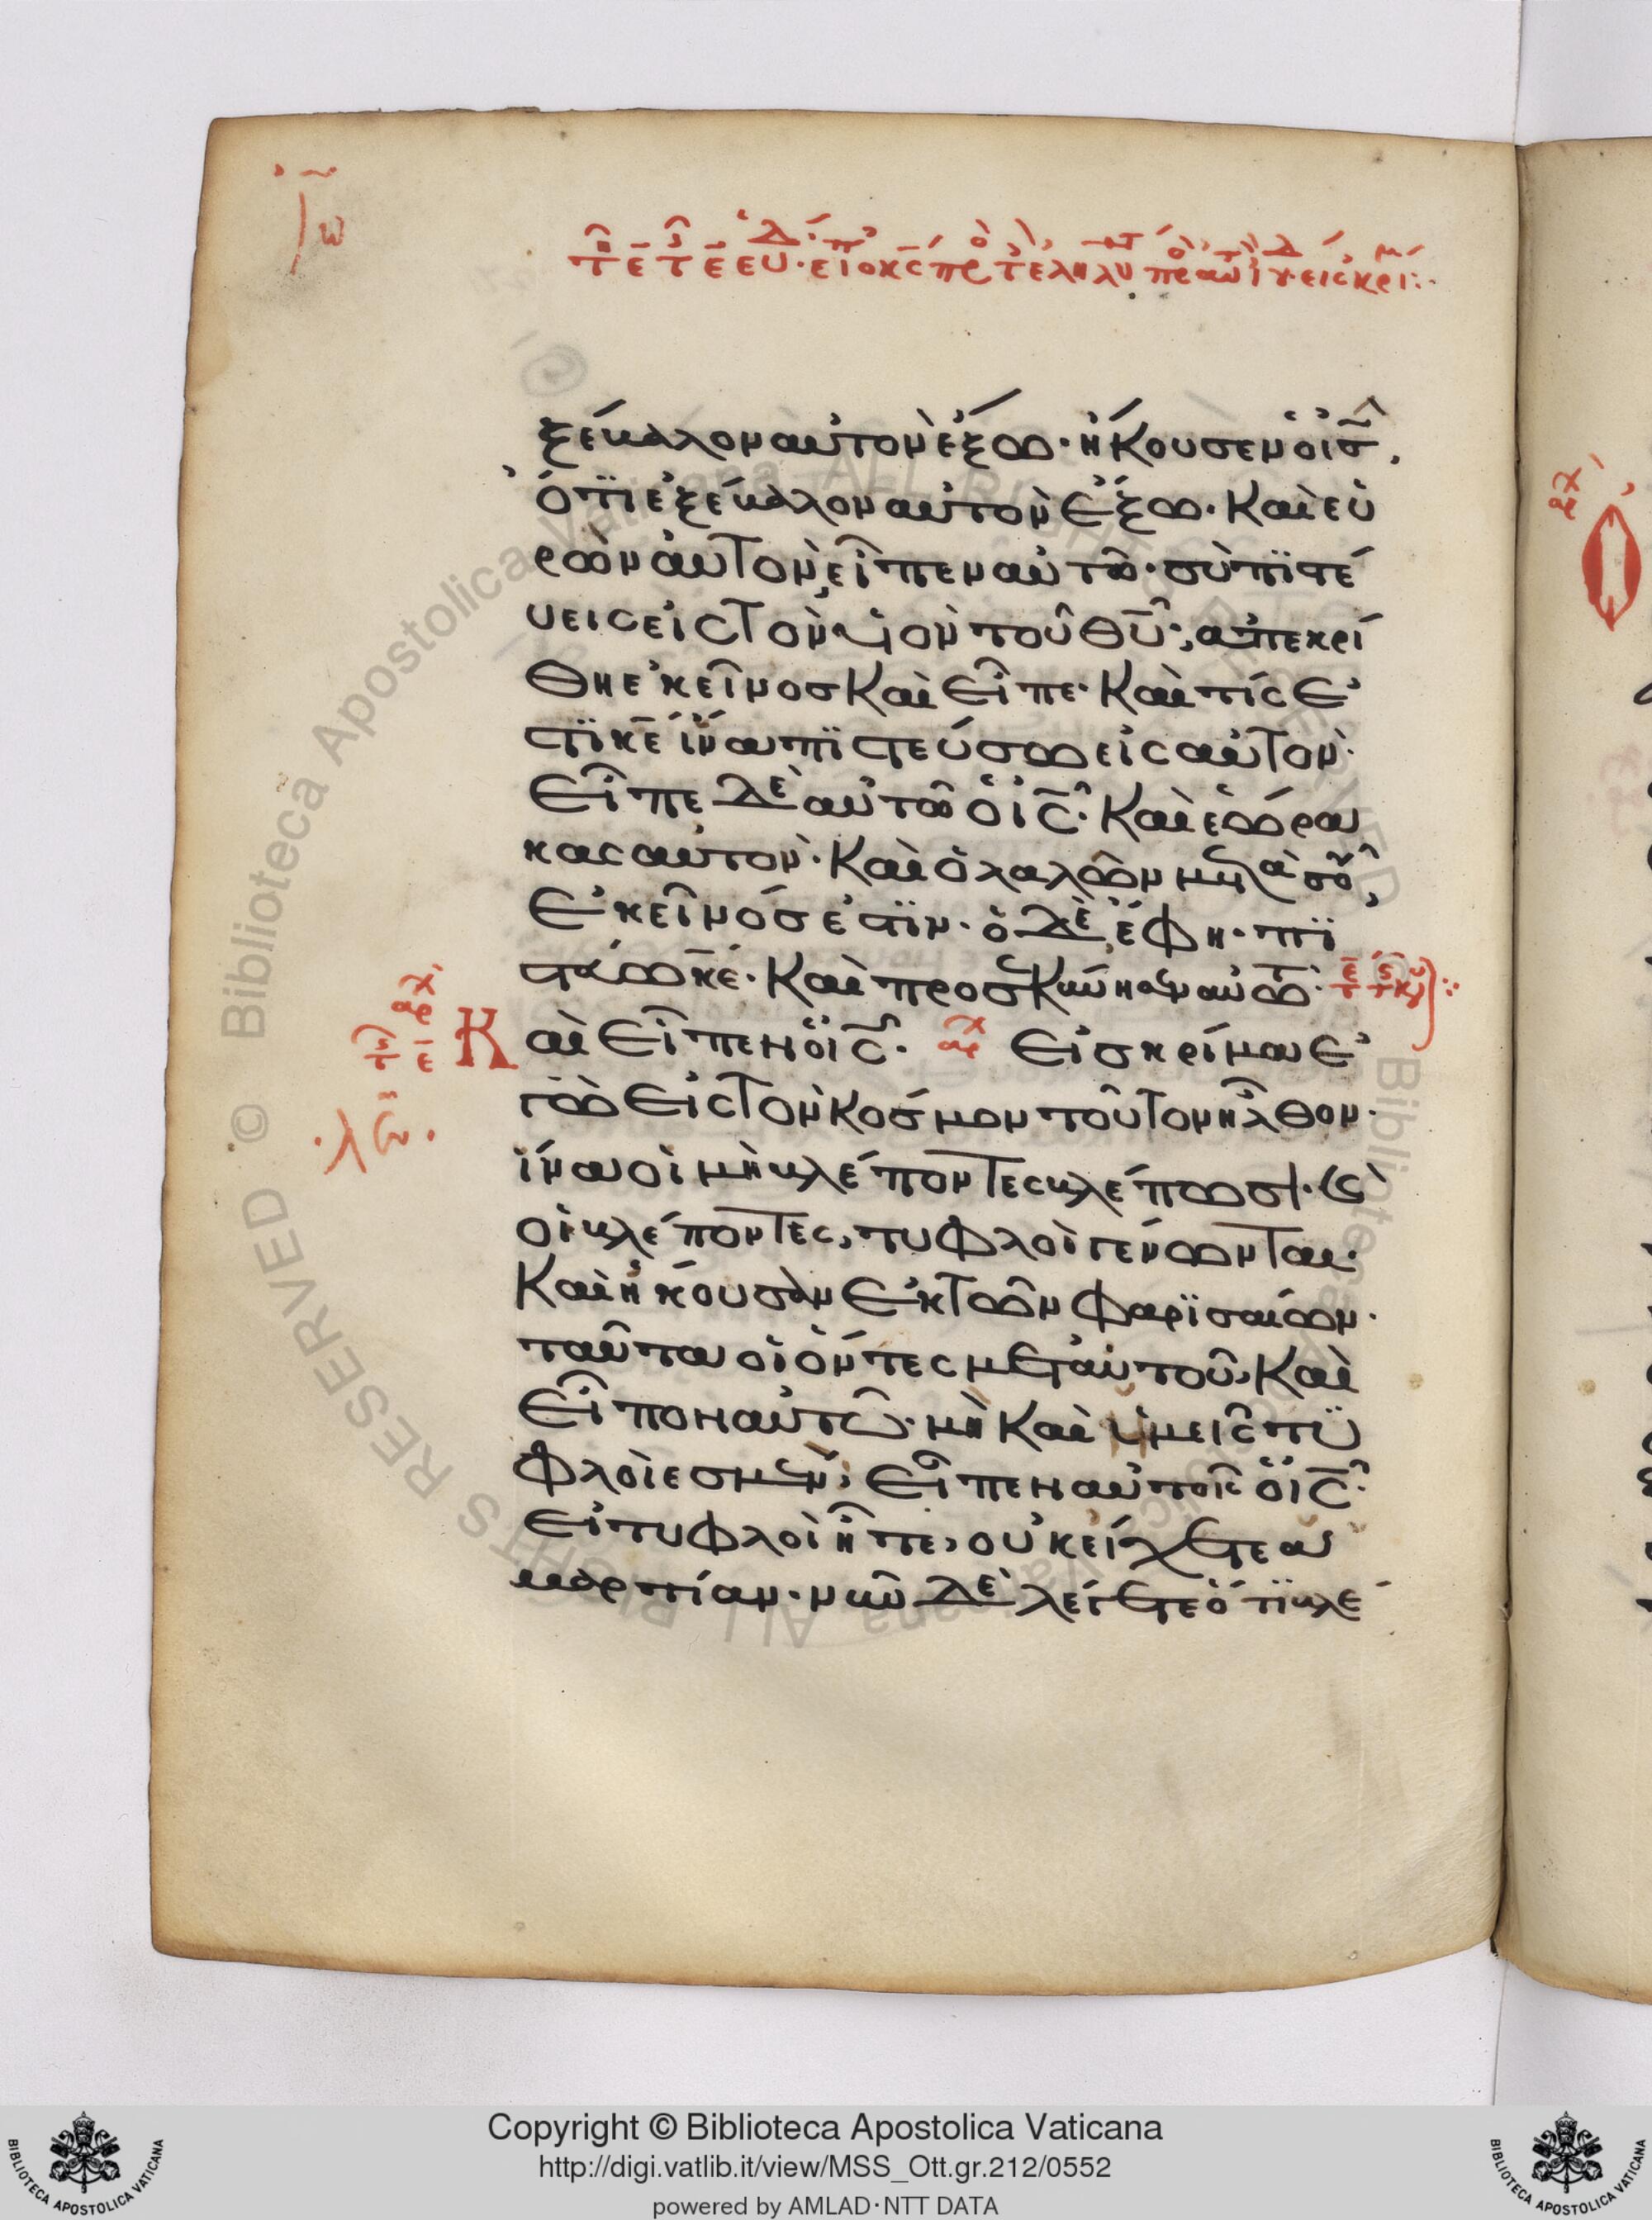 Ἰω
ξέβαλον αὐτὸν ἔξω· ἤκουσεν ὁ ις̅,
ὅτι ἐξέβαλον αὐτὸν ἔξω· Καὶ εὑ
ρὼν αὐτὸν, εἶπεν αὐτῶ· σὺ πϊστέ
υεις εἰς Τὸν ὑϊὸν τοῦ θυ̅; ἀπεκρί
θη ἐκεῖνος Καὶ εἶπε· Καὶ τίς ἐ
στϊ κε̅ ἵνα πϊστεύσω εἰς αὐτόν·
Εἶπε δὲ αὐτῶ ὁ ις̅· Καὶ ἑώρα
κας αὐτὸν· Καὶ ὁ λαλῶν μετὰ σοῦ,
Ἐκεῖνός ἐστϊν· ὁ δὲ, ἔφη· πϊ
στεύω κε̅· Καὶ προσεκύνησεν αὐτῶ·
αρχ
Καὶ εἶπεν ὁ ις̅· αρχ Εἰς κρίμα ἐ
γὼ εἰς Τὸν Κόσμον τοῦτον ἦλθον·
ἵνα οἱ μὴ βλέποντες βλέπωσι· Καὶ
οἱ βλέποντες, τυφλοὶ γένωνται·
Καὶ ἤκουσαν ἐκ Τῶν φαρϊσαίων·
ταῦτα οἱ ὄντες μετ' αὐτοῦ, Καὶ
Εἶπον αὐτῶ· μὴ Καὶ ὑμεῖς τυ
φλοὶ εσμεν; Εἶπεν αὐτοῖς ὁ ις̅·
Εἰ τυφλοὶ ἦτε, οὐκ εἴχετε ἁ
μαρτίαν· νῦν δὲ λέγετε ὅτϊ βλέ
αρχ
Copyright © Biblioteca Apostolica Vaticana
http://digi.vatlib.it/view/MSS_Ott.gr.212/0552
powered by AMLAD·NTT DATA
BIBLIOTECA APOSTOLICA VATICANA
BIBLIOTECA APOSTOLICA VATICANA